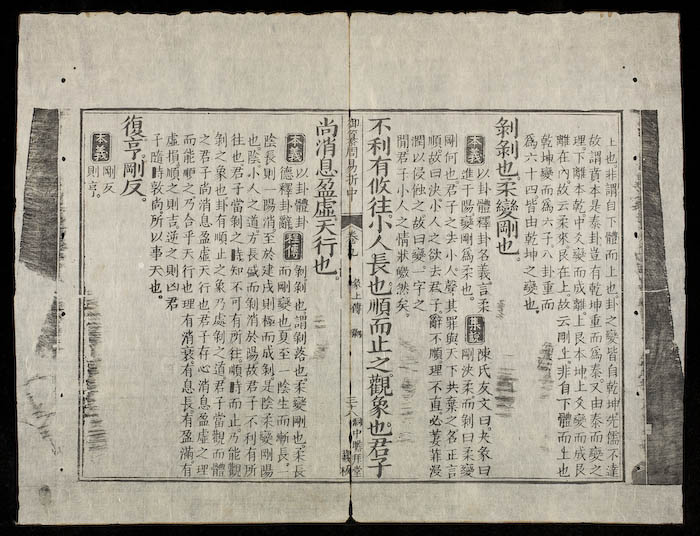 上也非謂自下體而上也卦之變皆自乾坤先儒不達
故謂賁本是泰卦豈有乾坤重而爲泰又由泰而變之
理下離本乾中爻變而成離上艮本坤上爻變而成艮
離在內故云柔來艮在上故云剛上非自下體而上也
乾坤變而爲六子八卦重而
爲六十四皆由乾坤之變也
剝剝也柔變剛也
本義 以卦體釋卦名義言柔
進干陽變剛爲柔也 集說 陳氏友文曰夬彖曰
剛決柔而剝曰柔變
剛何也君子之去小人聲其罪與天下共棄之名正言
順故曰決小人之欲去君子辭不順理不直必萋菲浸
潤以侵蝕之故曰變一字之
閒君子小人之情狀皦然矣
不利有攸往小人長也順而止之觀象也君子
御纂周易折中 卷九 彖上傳 剝 三十八
尚消息盈虛天行也
本義 以卦體卦
德釋卦辭 程傳 剝剝也謂剝落也柔變剛也柔長
而剛變也夏至一陰生而漸長一
陰長則一陽消至於建戌則極而成剝是陰柔變剛陽
也陰小人之道方長盛而剝消於陽故君子不利有所
往也君子當剝之時知不可有所往順時而止乃能觀
剝之象也卦有順止之象乃處剝之道君子當觀而體
之君子尚消息盈虛天行也君子存心消息盈虛之理
而能順之乃合乎天行也理有消衰有息長有盈滿有
虛損順之則吉逆之則凶君
子隨時敦尚所以事天也
復亨剛反
本義 剛反
則亨